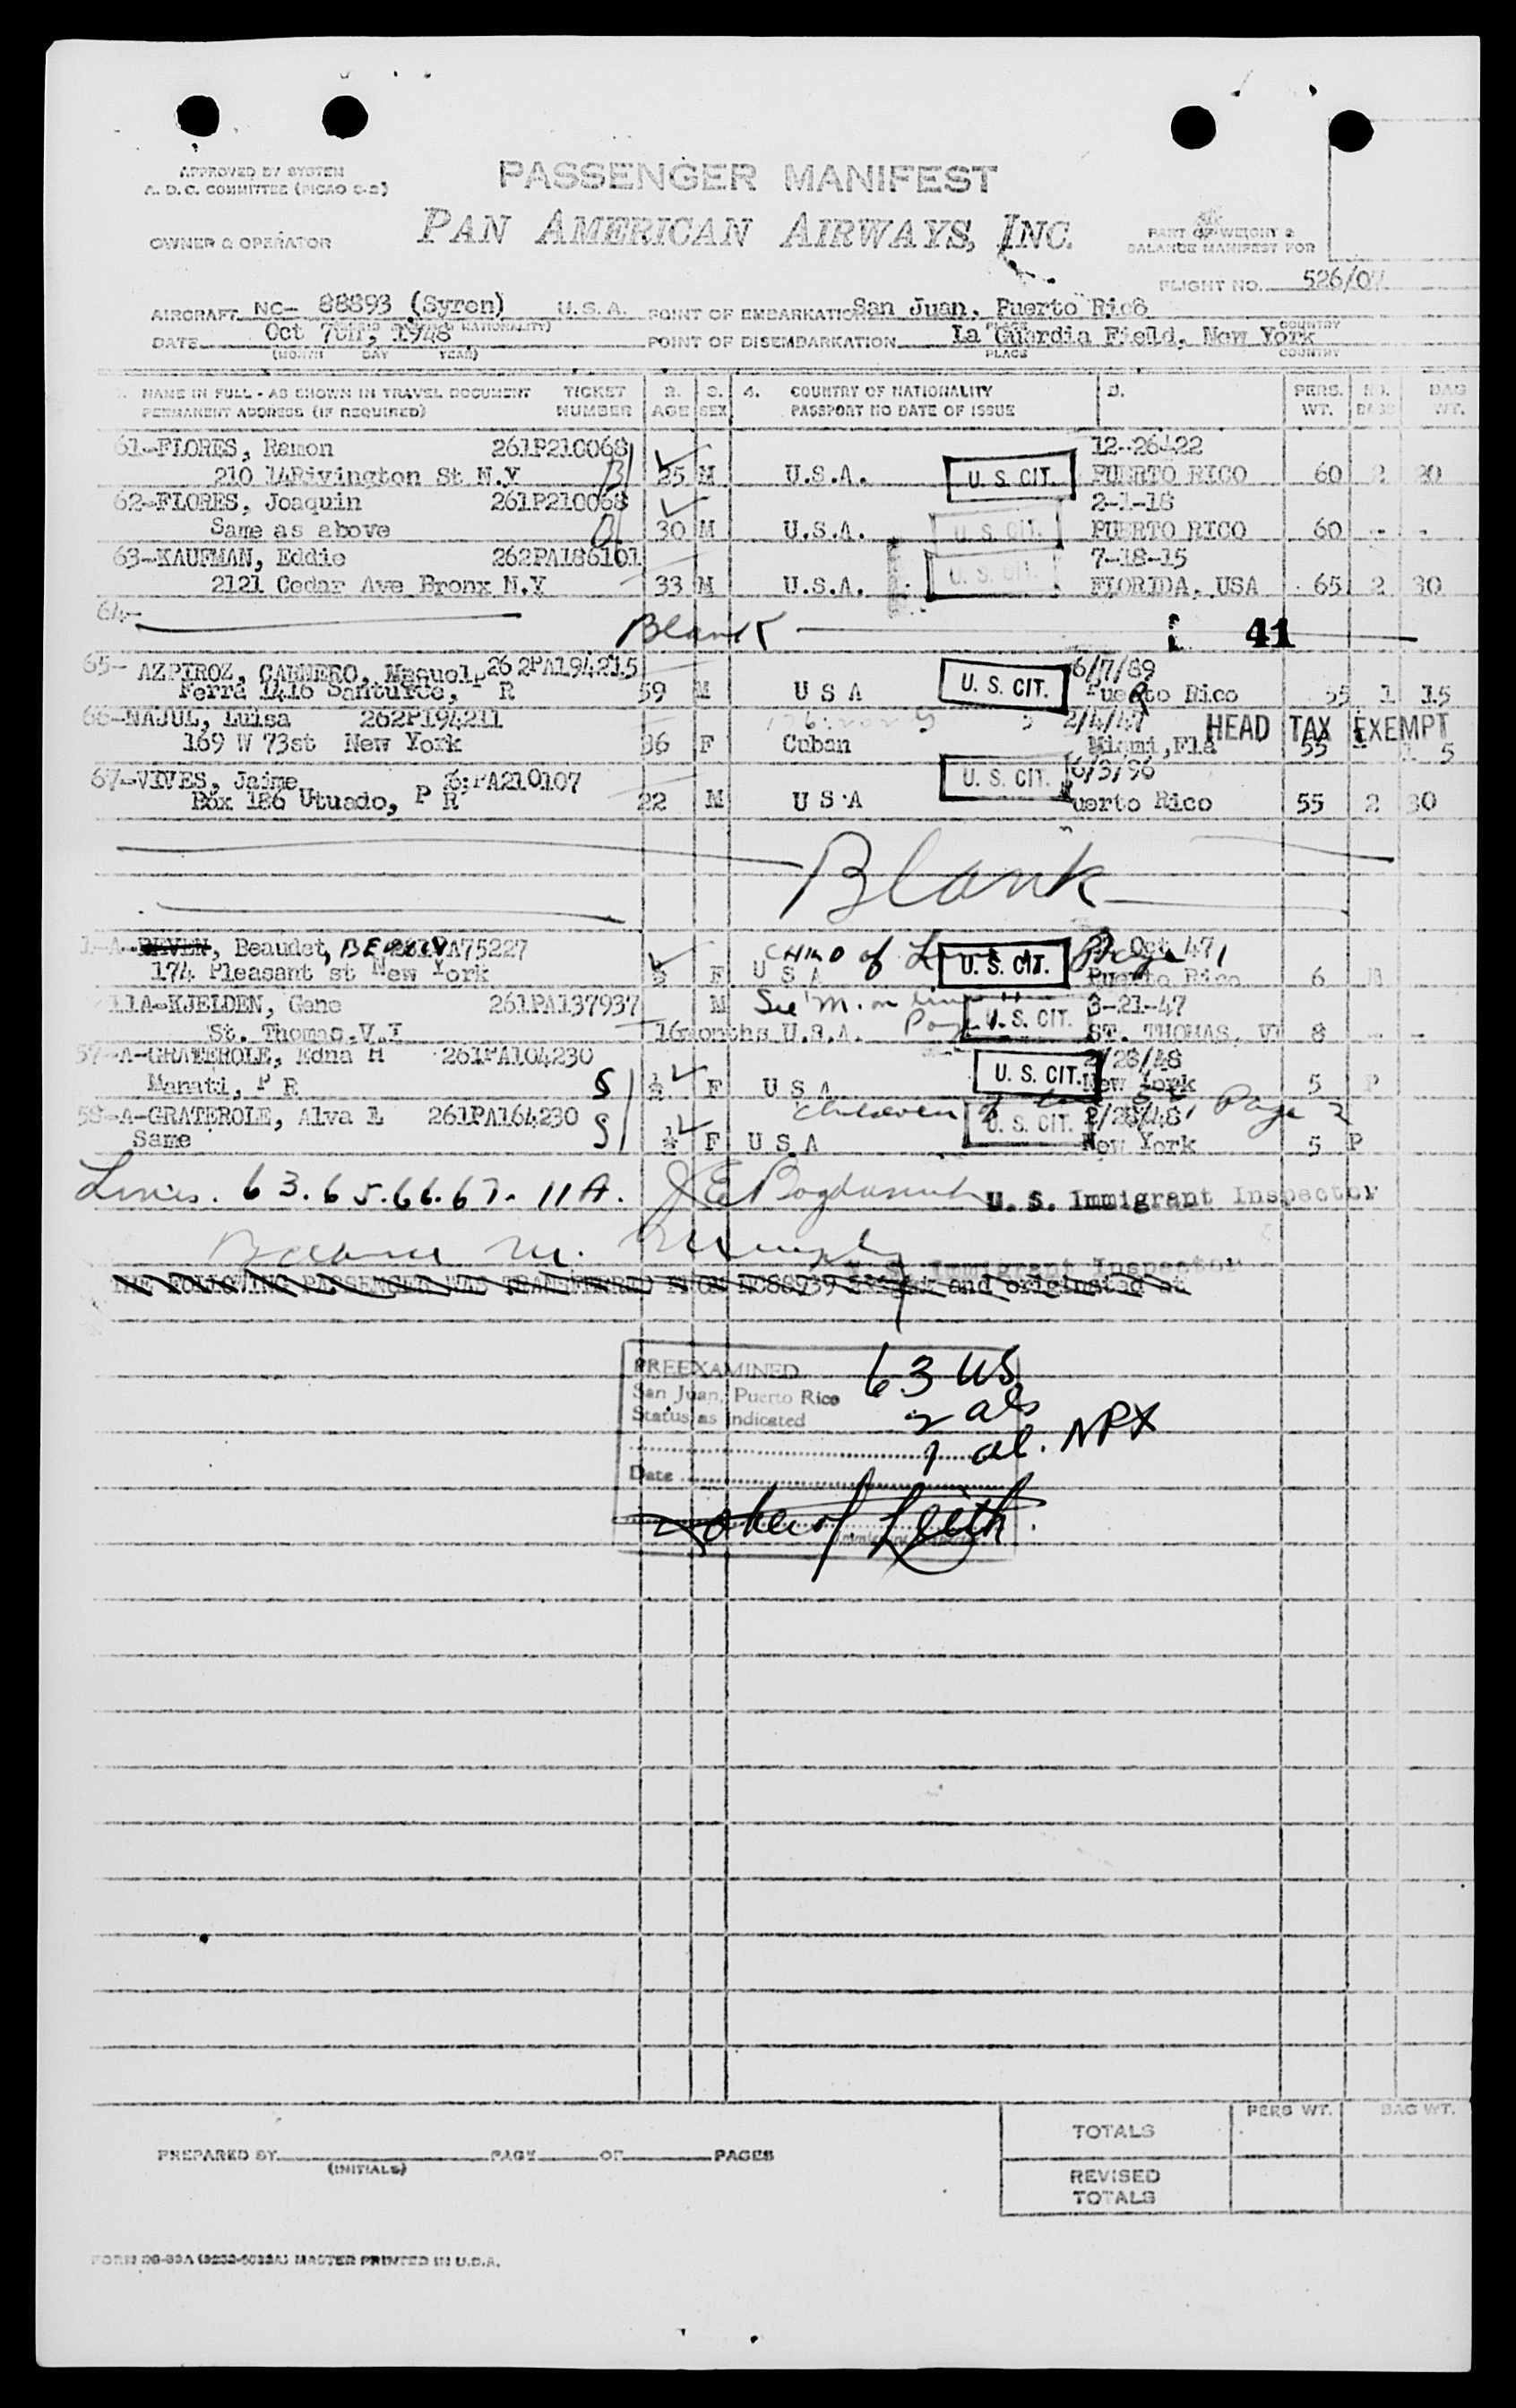 APPROVED BY SYSTEM
A. D. C. COMMITTEE (PICAO 6-2)
PASSENGER MANIFEST
OWNER & OPERATOR
PAN AMERICAN AIRWAYS, INC.
PART OF WEIGHT &
BALANCE MANIFEST FOR
FLIGHT NO. 526/07
AIRCRAFT NC- 88893 (Syren) U.S.A. POINT OF EMBARKATION San Juan, Puerto Rico
DATE Oct 7th, 1948 POINT OF DISEMBARKATION La Guardia Field, New York
(MONTH DAY YEAR) PLACE COUNTRY
NAME IN FULL - AS SHOWN IN TRAVEL DOCUMENT TICKET 2. 3. 4. COUNTRY OF NATIONALITY 5. PERS. NO. BAG
PERMANENT ADDRESS (IF REQUIRED) NUMBER AGE SEX PASSPORT NO DATE OF ISSUE WT. BAGS WT.
61-FLORES, Ramon 261P210068 12-26-22
210 14Rivington St N.Y B 25 M U.S.A. U. S. CIT. PUERTO RICO 60 2 20
62-FLORES, Joaquin 261P210068 2-1-18
Same as above B 30 M U.S.A. U. S. CIT. PUERTO RICO 60 - -
63-KAUFMAN, Eddie 262PA186101 7-18-15
2121 Cedar Ave Bronx N.Y 33 M U.S.A. U. S. CIT. FLORIDA, USA 65 2 30
64- Blank 41
65- AZPIROZ, CARNERO, 262PA194215 6/7/89
Ferra 1416 Santurce, P R 59 M U S A U. S. CIT. Puerto Rico 55 1 15
66-NAJUL, Luisa 262P194211 2/4/47 HEAD TAX EXEMPT
169 W 73st New York 36 F Cuban Miami, Fla 55 1 5
67-VIVES, Jaime PA210107 U. S. CIT. 6/3/96
Box 126 Utuado, P R 22 M U S A Puerto Rico 55 2 30
Blank
1-A- Beaudet, A75227 CHILD of U. S. CIT. Oct 47
174 Pleasant st New York ½ F U S A Puerto Rico 6 B
11A-KJELDEN, Gene 261PA137937 M See M. on line 11 3-21-47
St. Thomas, V.I 16months U.S.A. Page U. S. CIT. ST. THOMAS, VI 8 - -
57-A-GRATEROLE, Edna M 261PA104230 2/28/48
Manati, P R S ½ F U S A U. S. CIT. New York 5 P
58-A-GRATEROLE, Alva E 261PA164230 children of U. S. CIT. 2/28/48 Page 2
Same S ½ F U S A New York 5 P
Lines. 63.65.66.67. 11A. U. S. Immigrant Inspector
U. S. Immigrant Inspector
THE FOLLOWING PASSENGER WAS TRANSFERRED FROM NC88939 and originated at
PREEXAMINED 63 US
San Juan, Puerto Rico
Status as indicated 2 als
1 al. NPX
Date
Immigrant Inspector
TOTALS PERS WT. BAG WT.
PREPARED BY PAGE OF PAGES
(INITIALS)
REVISED
TOTALS
MASTER PRINTED IN U.S.A.